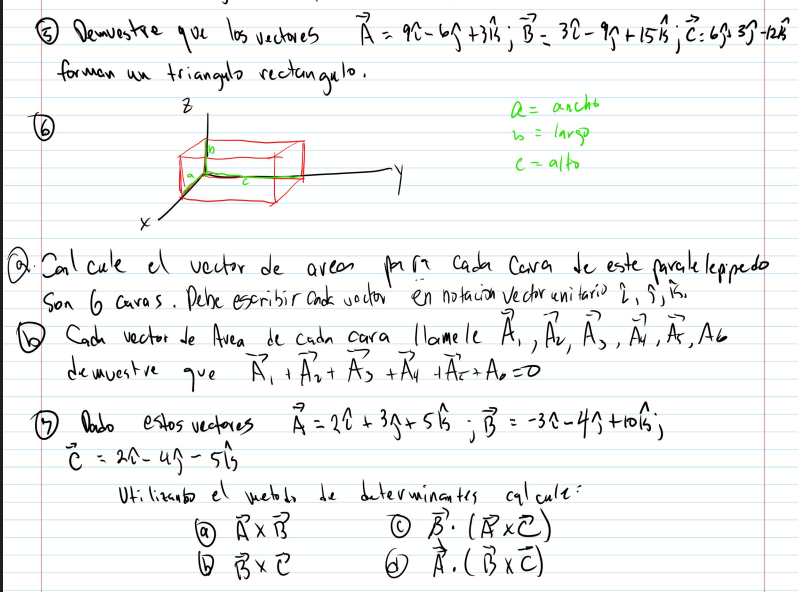 ⑤ Demuestre que los vectores A⃗ = 9î - 6ĵ + 3k̂ ; B⃗ = 3î - 9ĵ + 15k̂ ; C⃗ = 6ĵ + 3ĵ - 12k̂
forman un triangulo rectangulo.
⑥
z
b
a
c
y
x
a = ancho
b = largo
c = alto
ⓐ. Calcule el vector de area para cada cara de este paralelepipedo
son 6 caras. Debe escribir cada vector en notacion vector unitario î, ĵ, k̂.
ⓑ Cada vector de Area de cada cara llamele A⃗₁, A⃗₂, A⃗₃, A⃗₄, A⃗₅, A₆
demuestre que A⃗₁ + A⃗₂ + A⃗₃ + A⃗₄ + A⃗₅ + A₆ = 0
⑦ Dado estos vectores A⃗ = 2î + 3ĵ + 5k̂ ; B⃗ = -3î - 4ĵ + 10k̂ ;
C⃗ = 2î - 4ĵ - 5k̂
Utilizando el metodo de determinantes calcule:
ⓐ A⃗ x B⃗ ⓒ B⃗ · (A⃗ x C⃗)
ⓑ B⃗ x C⃗ ⓓ A⃗ · (B⃗ x C⃗)